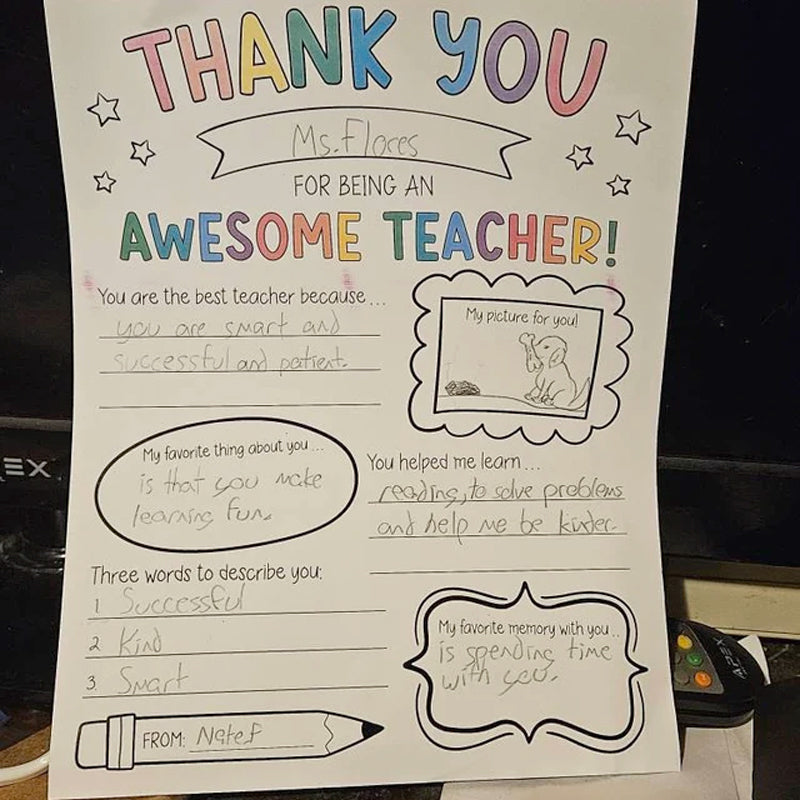 THANK YOU
Ms. Flores
FOR BEING AN
AWESOME TEACHER!
You are the best teacher because...
you are smart and
successful and patient.
My picture for you!
My favorite thing about you...
is that you make
learning fun.
You helped me learn...
reading, to solve problems
and help me be kinder.
Three words to describe you:
1 Successful
2 Kind
3. Smart
My favorite memory with you...
is spending time
with you.
FROM: Nate F
EX
APEX